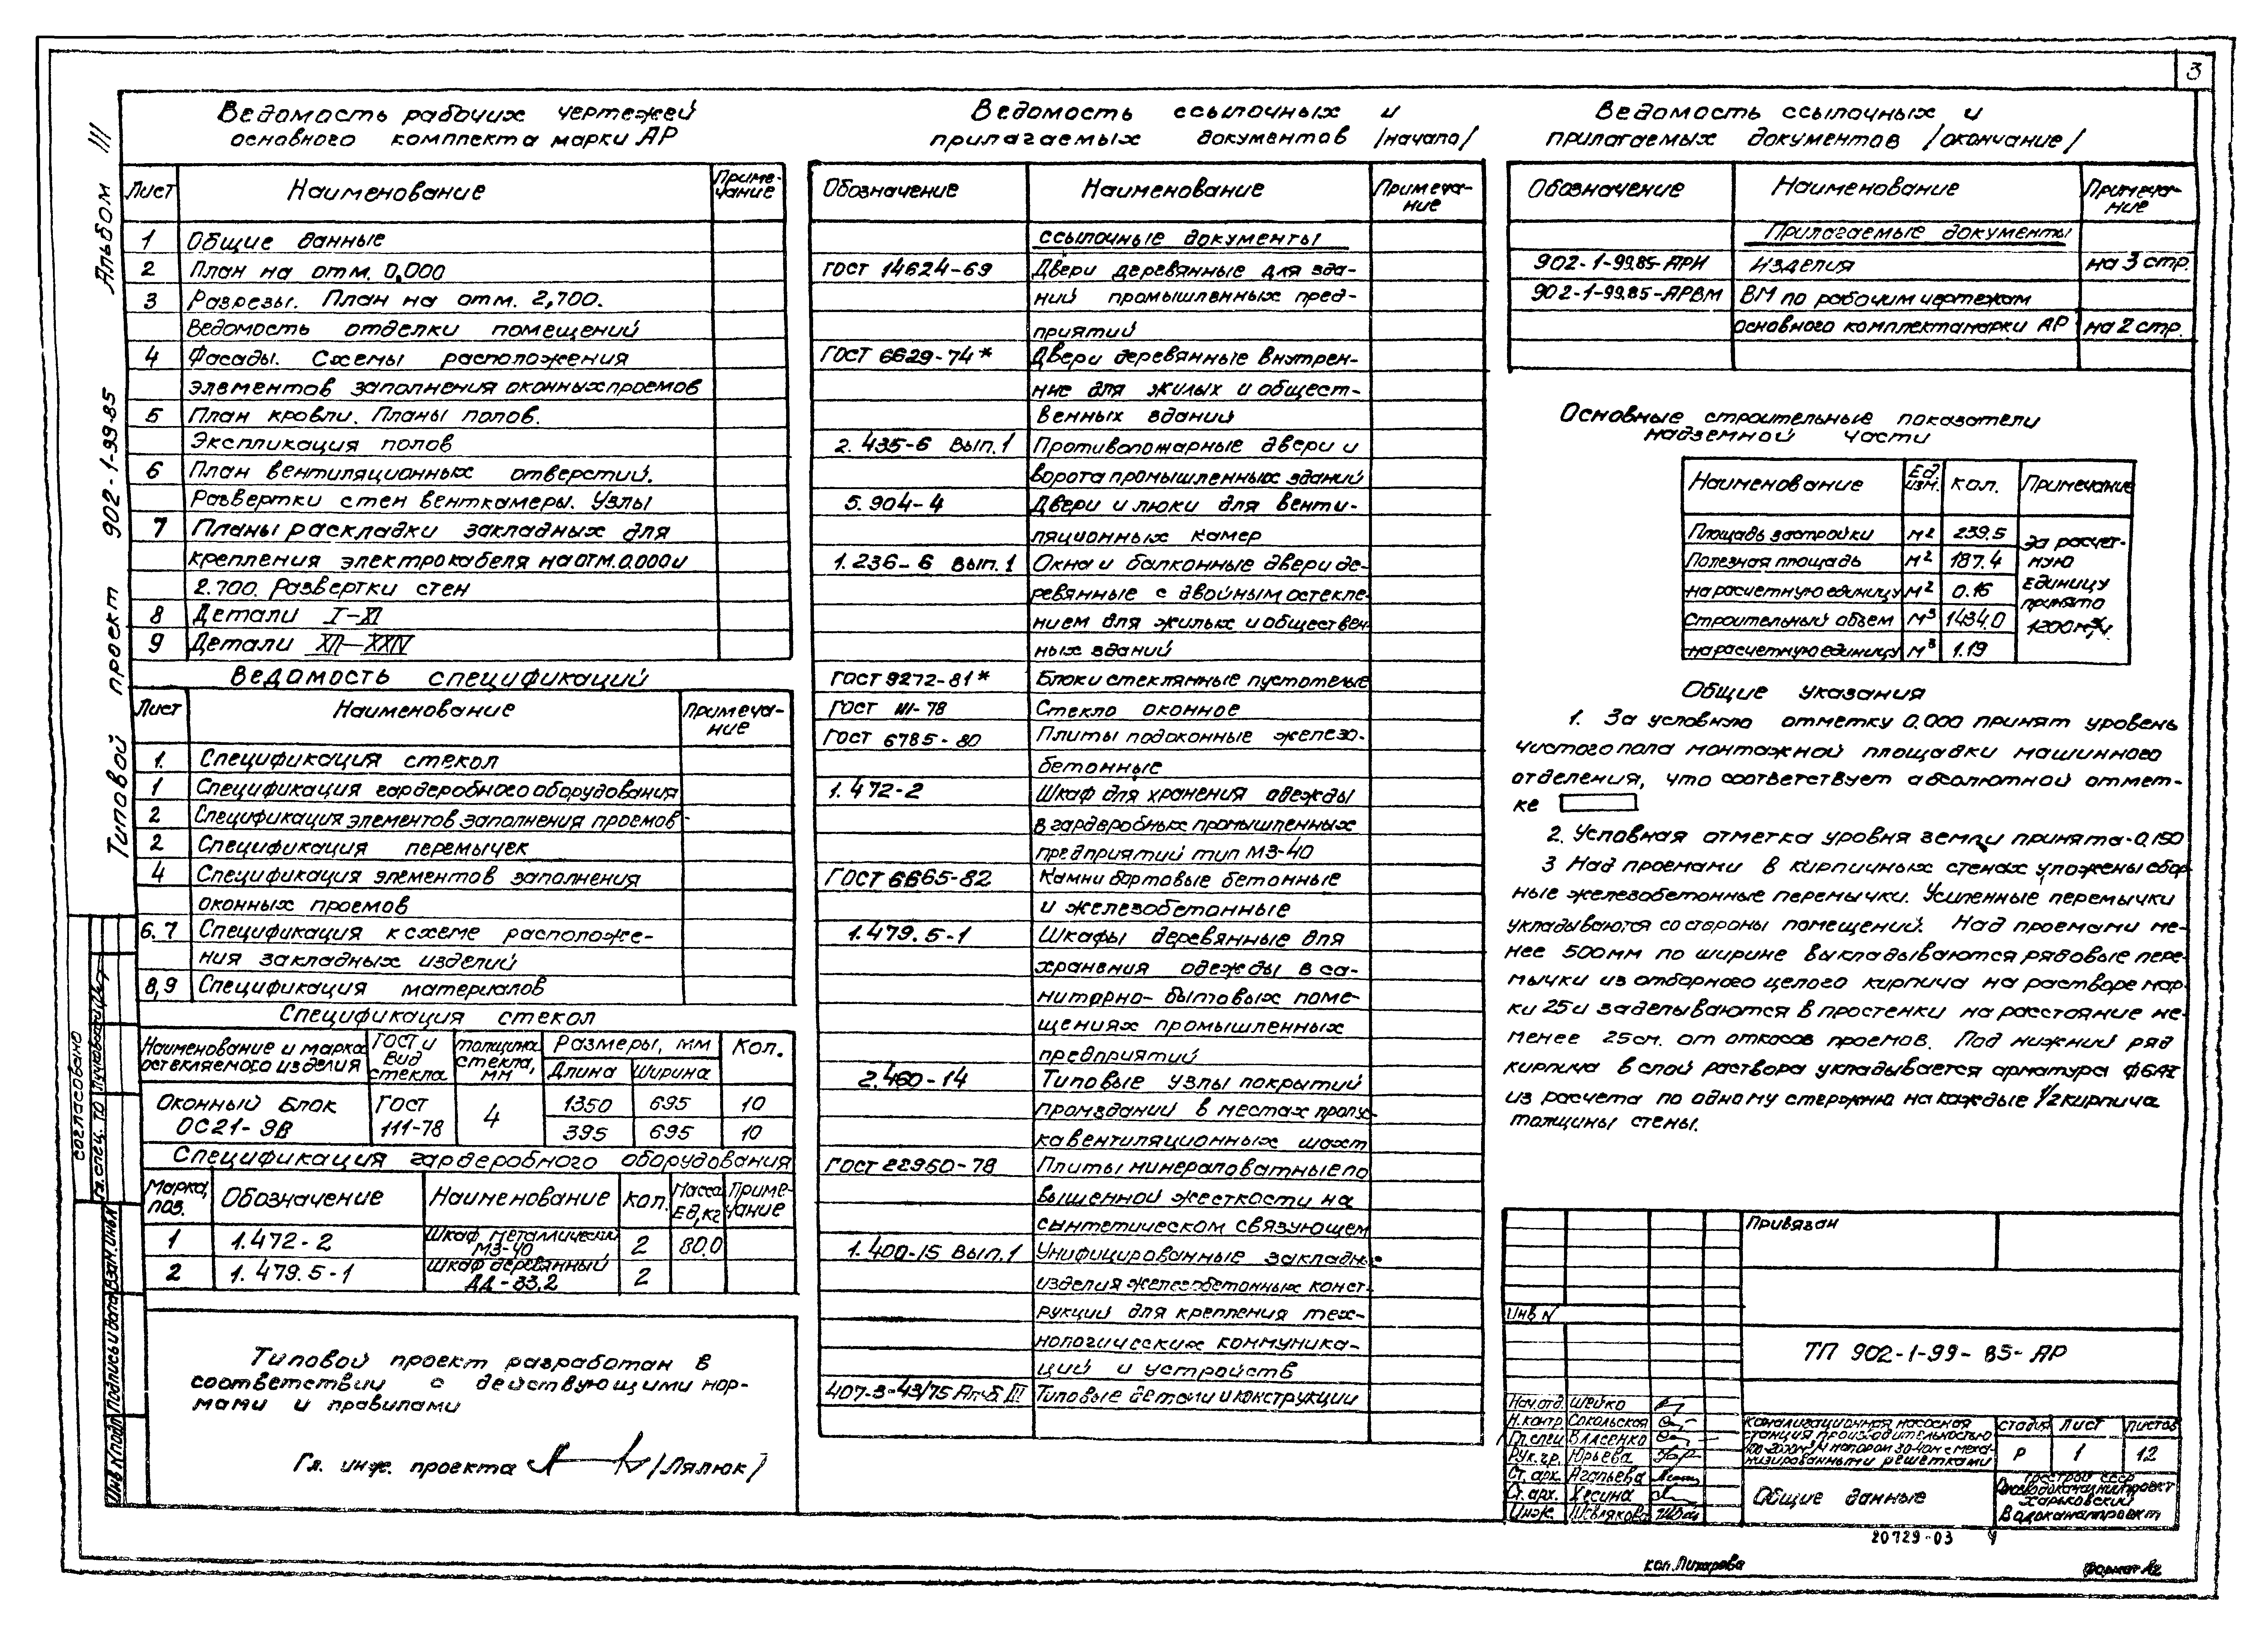 3
Альбом III
Типовой проект 902-1-99-85
Ведомость рабочих чертежей
основного комплекта марки АР
Лист Наименование Приме-
чание
1 Общие данные
2 План на отм. 0,000
3 Разрезы. План на отм. 2,700.
Ведомость отделки помещений
4 Фасады. Схемы расположения
элементов заполнения оконных проемов
5 План кровли. Планы полов.
Экспликация полов
6 План вентиляционных отверстий.
Развертки стен венткамеры. Узлы
7 Планы раскладки закладных для
крепления электрокабеля на отм. 0.000 и
2.700. Развертки стен
8 Детали I-XI
9 Детали XII-XXIV
Ведомость спецификаций
Лист Наименование Примеча-
ние
1. Спецификация стекол
1 Спецификация гардеробного оборудования
2 Спецификация элементов заполнения проемов
2 Спецификация перемычек
4 Спецификация элементов заполнения
оконных проемов
6.7 Спецификация к схеме расположе-
ния закладных изделий
8,9 Спецификация материалов
Спецификация стекол
Наименование и марка остекляемого изделия ГОСТ и вид стекла Толщина стекла, мм Размеры, мм Кол.
Длина Ширина
Оконный блок ГОСТ 4 1350 695 10
ОС21-9В 111-78 395 695 10
Спецификация гардеробного оборудования
Марка, поз. Обозначение Наименование Кол. Масса ед,кг Приме-
чание
1 1.472-2 Шкаф металлический МЗ-40 2 80.0
2 1.479.5-1 Шкаф деревянный ДД-33.2 2
Типовой проект разработан в
соответствии с действующими нор-
мами и правилами
Гл. инж. проекта /Лялюк/
Ведомость ссылочных и
прилагаемых документов /начало/
Обозначение Наименование Примеча-
ние
Ссылочные документы
ГОСТ 14624-69 Двери деревянные для зда-
ний промышленных пред-
приятий
ГОСТ 6629-74* Двери деревянные внутрен-
ние для жилых и общест-
венных зданий
2.435-6 Вып.1 Противопожарные двери и
ворота промышленных зданий
5.904-4 Двери и люки для венти-
ляционных камер
1.236-6 вып.1 Окна и балконные двери де-
ревянные с двойным остекле-
нием для жилых и обществен-
ных зданий
ГОСТ 9272-81* Блоки стеклянные пустотелые
ГОСТ 111-78 Стекло оконное
ГОСТ 6785-80 Плиты подоконные железо-
бетонные
1.472-2 Шкаф для хранения одежды
в гардеробных промышленных
предприятий тип МЗ-40
ГОСТ 6665-82 Камни бортовые бетонные
и железобетонные
1.479.5-1 Шкафы деревянные для
хранения одежды в са-
нитарно-бытовых поме-
щениях промышленных
предприятий
2.460-14 Типовые узлы покрытий
промзданий в местах пропус-
ка вентиляционных шахт
ГОСТ 22950-78 Плиты минераловатные по
вышенной жесткости на
синтетическом связующем
1.400-15 Вып.1 Унифицированные закладные
изделия железобетонных конст-
рукций для крепления тех-
нологических коммуника-
ций и устройств
407-3-43/75 Альб III Типовые детали и конструкции
Ведомость ссылочных и
прилагаемых документов /окончание/
Обозначение Наименование Примеча-
ние
Прилагаемые документы
902-1-99.85-АРИ Изделия на 3 стр.
902-1-99.85-АРВМ ВМ по рабочим чертежам
основного комплекта марки АР на 2 стр.
Основные строительные показатели
надземной части
Наименование Ед. изм. Кол. Примечание
Площадь застройки м2 239.5 За расчет-
Полезная площадь м2 187.4 ную
на расчетную единицу м2 0.16 единицу
Строительный объем м3 1434.0 принято
на расчетную единицу м3 1.19 1200м³/ч.
Общие указания
1. За условную отметку 0.000 принят уровень
чистого пола монтажной площадки машинного
отделения, что соответствует абсолютной отмет-
ке
2. Условная отметка уровня земли принята -0,150
3 Над проемами в кирпичных стенах уложены сбор-
ные железобетонные перемычки. Усиленные перемычки
укладываются со стороны помещений. Над проемами ме-
нее 500мм по ширине выкладываются рядовые пере-
мычки из отборного целого кирпича на растворе мар-
ки 25 и заделываются в простенки на расстояние не
менее 25см. от откосов проемов. Под нижний ряд
кирпича в слой раствора укладывается арматура ф6АI
из расчета по одному стержню на каждые 1/2 кирпича
толщины стены.
Привязан
Инв N
ТП 902-1-99-85-АР
Нач.отд. Шейко
Н.контр. Сокольская
Гл.спец Власенко
Рук.гр. Юрьева
Ст.арх. Агапьева
Ст.арх. Хесина
Инж. Шевлякова
Канализационная насосная
станция производительностью
напором 30-40м с меха-
низированными решетками
Стадия Лист Листов
Р 1 12
Общие данные
Госстрой СССР
Союзводоканалниипроект
Харьковский
Водоканалпроект
20729-03 4
кол. Пихарева
Формат А2
Согласовано
Гл. спец. ТО
Инв N подл. Подпись и дата Взам. инв. N